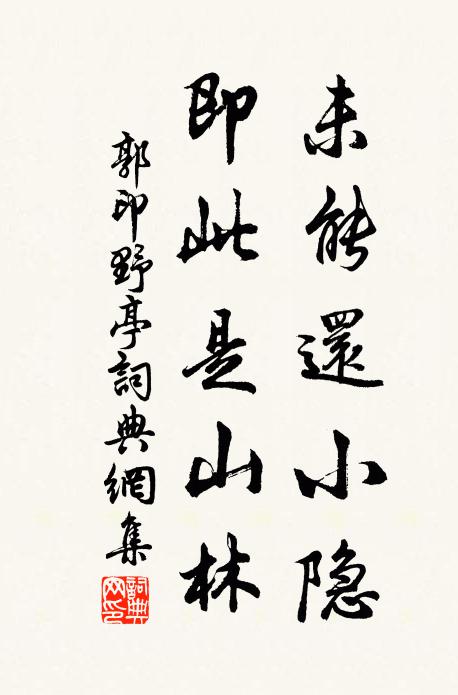 未能還小隐
即此是山林
郭印野亭詞典網集
詞典网印